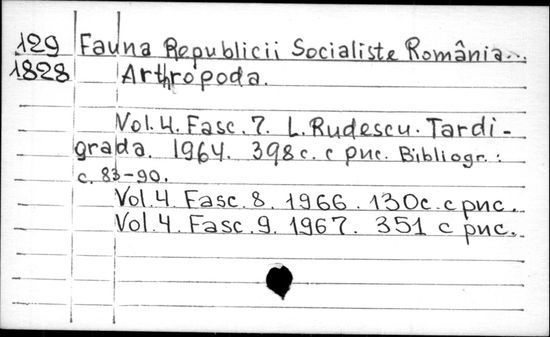 129 Fauna Republicii Socialiste România...
1828 Arthropoda.
Vol.4. Fasc.7. L.Rudescu. Tardi-
grada. 1964. 398c. с рис. Bibliogr.:
c. 83-90.
Vol.4 Fasc.8. 1966. 130c. с рис.
Vol.4. Fasc.9. 1967. 351 с рис.